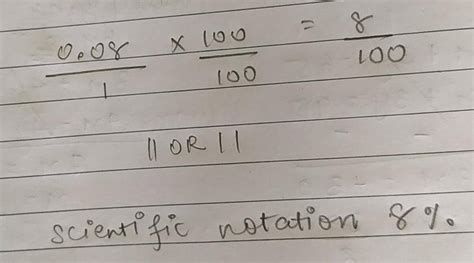 0.08/1 × 100/100 = 8/100
|| OR ||
scientific notation 8%.